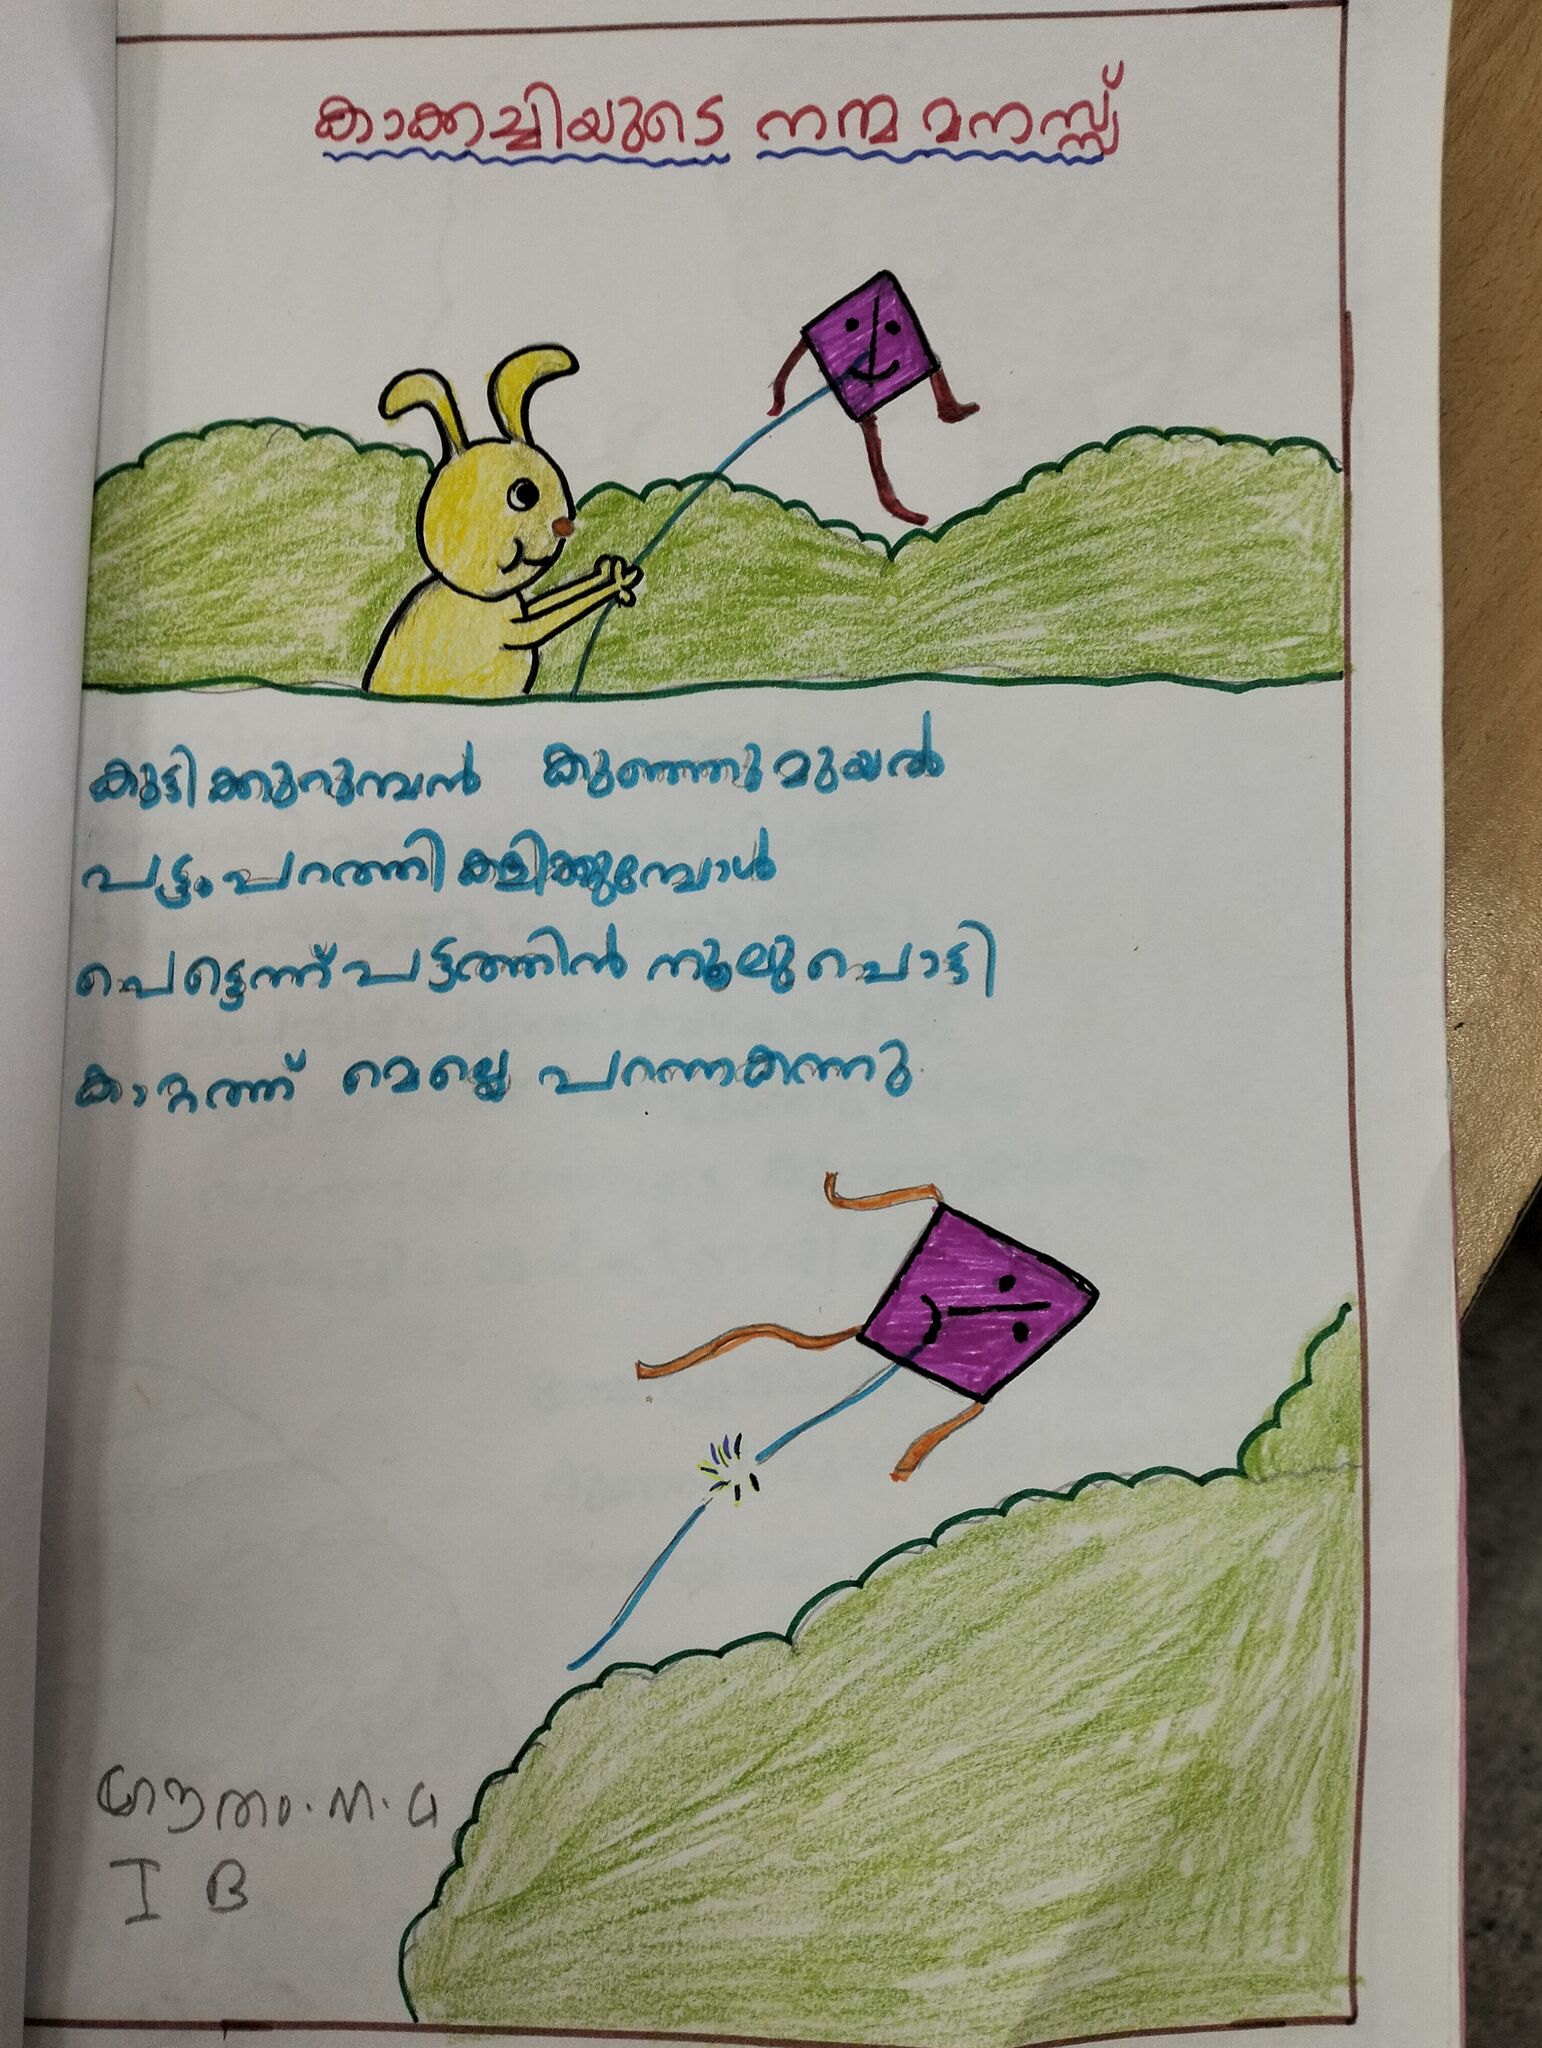 കാക്കച്ചിയുടെ നന്മ മനസ്സ്
കുട്ടിക്കുറുമ്പൻ കുഞ്ഞുമുയൽ
പട്ടം പറത്തി കളിക്കുമ്പോൾ
പെട്ടെന്ന് പട്ടത്തിൻ നൂലു പൊട്ടി
കാറ്റത്ത് മെല്ലെ പറന്നകന്നു
ഗൗതം. M. G
I B